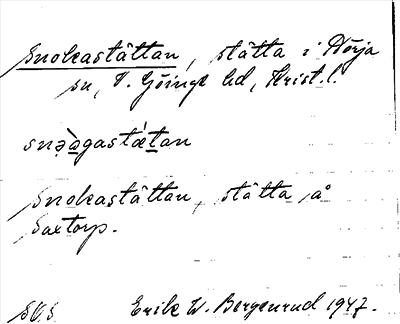 Snokastättan, stätta i Nörja
sn, V. Göinge hd, Krist. l.
snə̀agastǽtan
Snokastättan, stätta å
Saxtorp.
Erik W. Bergenrud 1947.